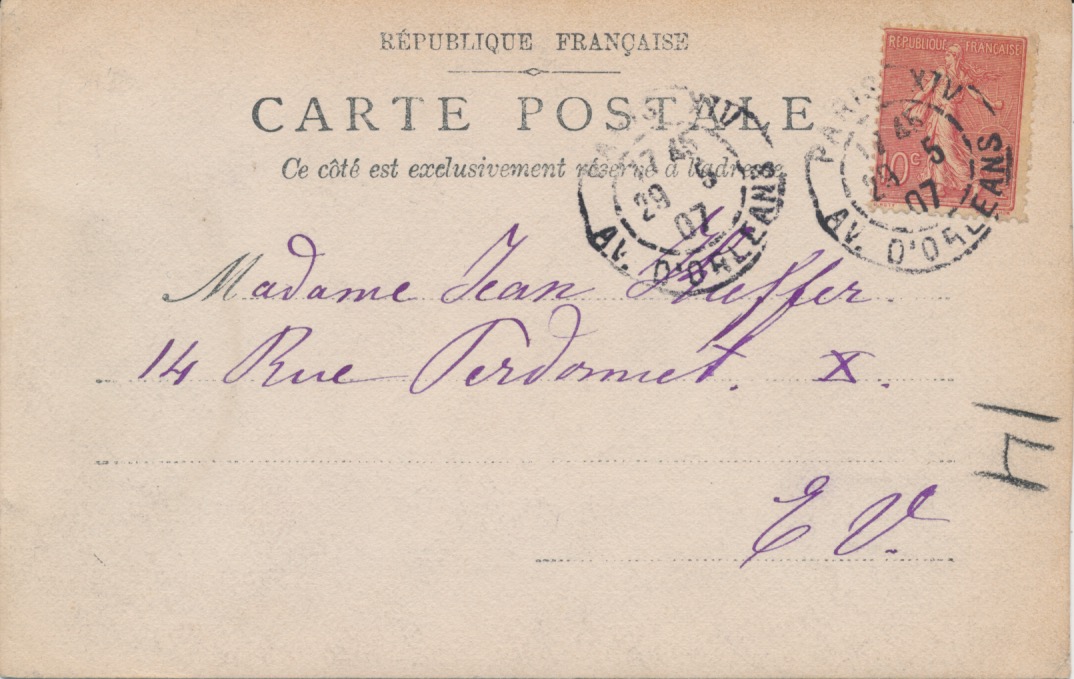 RÉPUBLIQUE FRANÇAISE
CARTE POSTALE
Ce côté est exclusivement réservé à l'adresse
RÉPUBLIQUE FRANÇAISE
10c
PARIS XIV
17 45
29 5
07
AV. D'ORLEANS
PARIS XIV
17 45
29 5
07
AV. D'ORLEANS
Madame Jean
14 Rue Perdonnet. X.
E V.
14